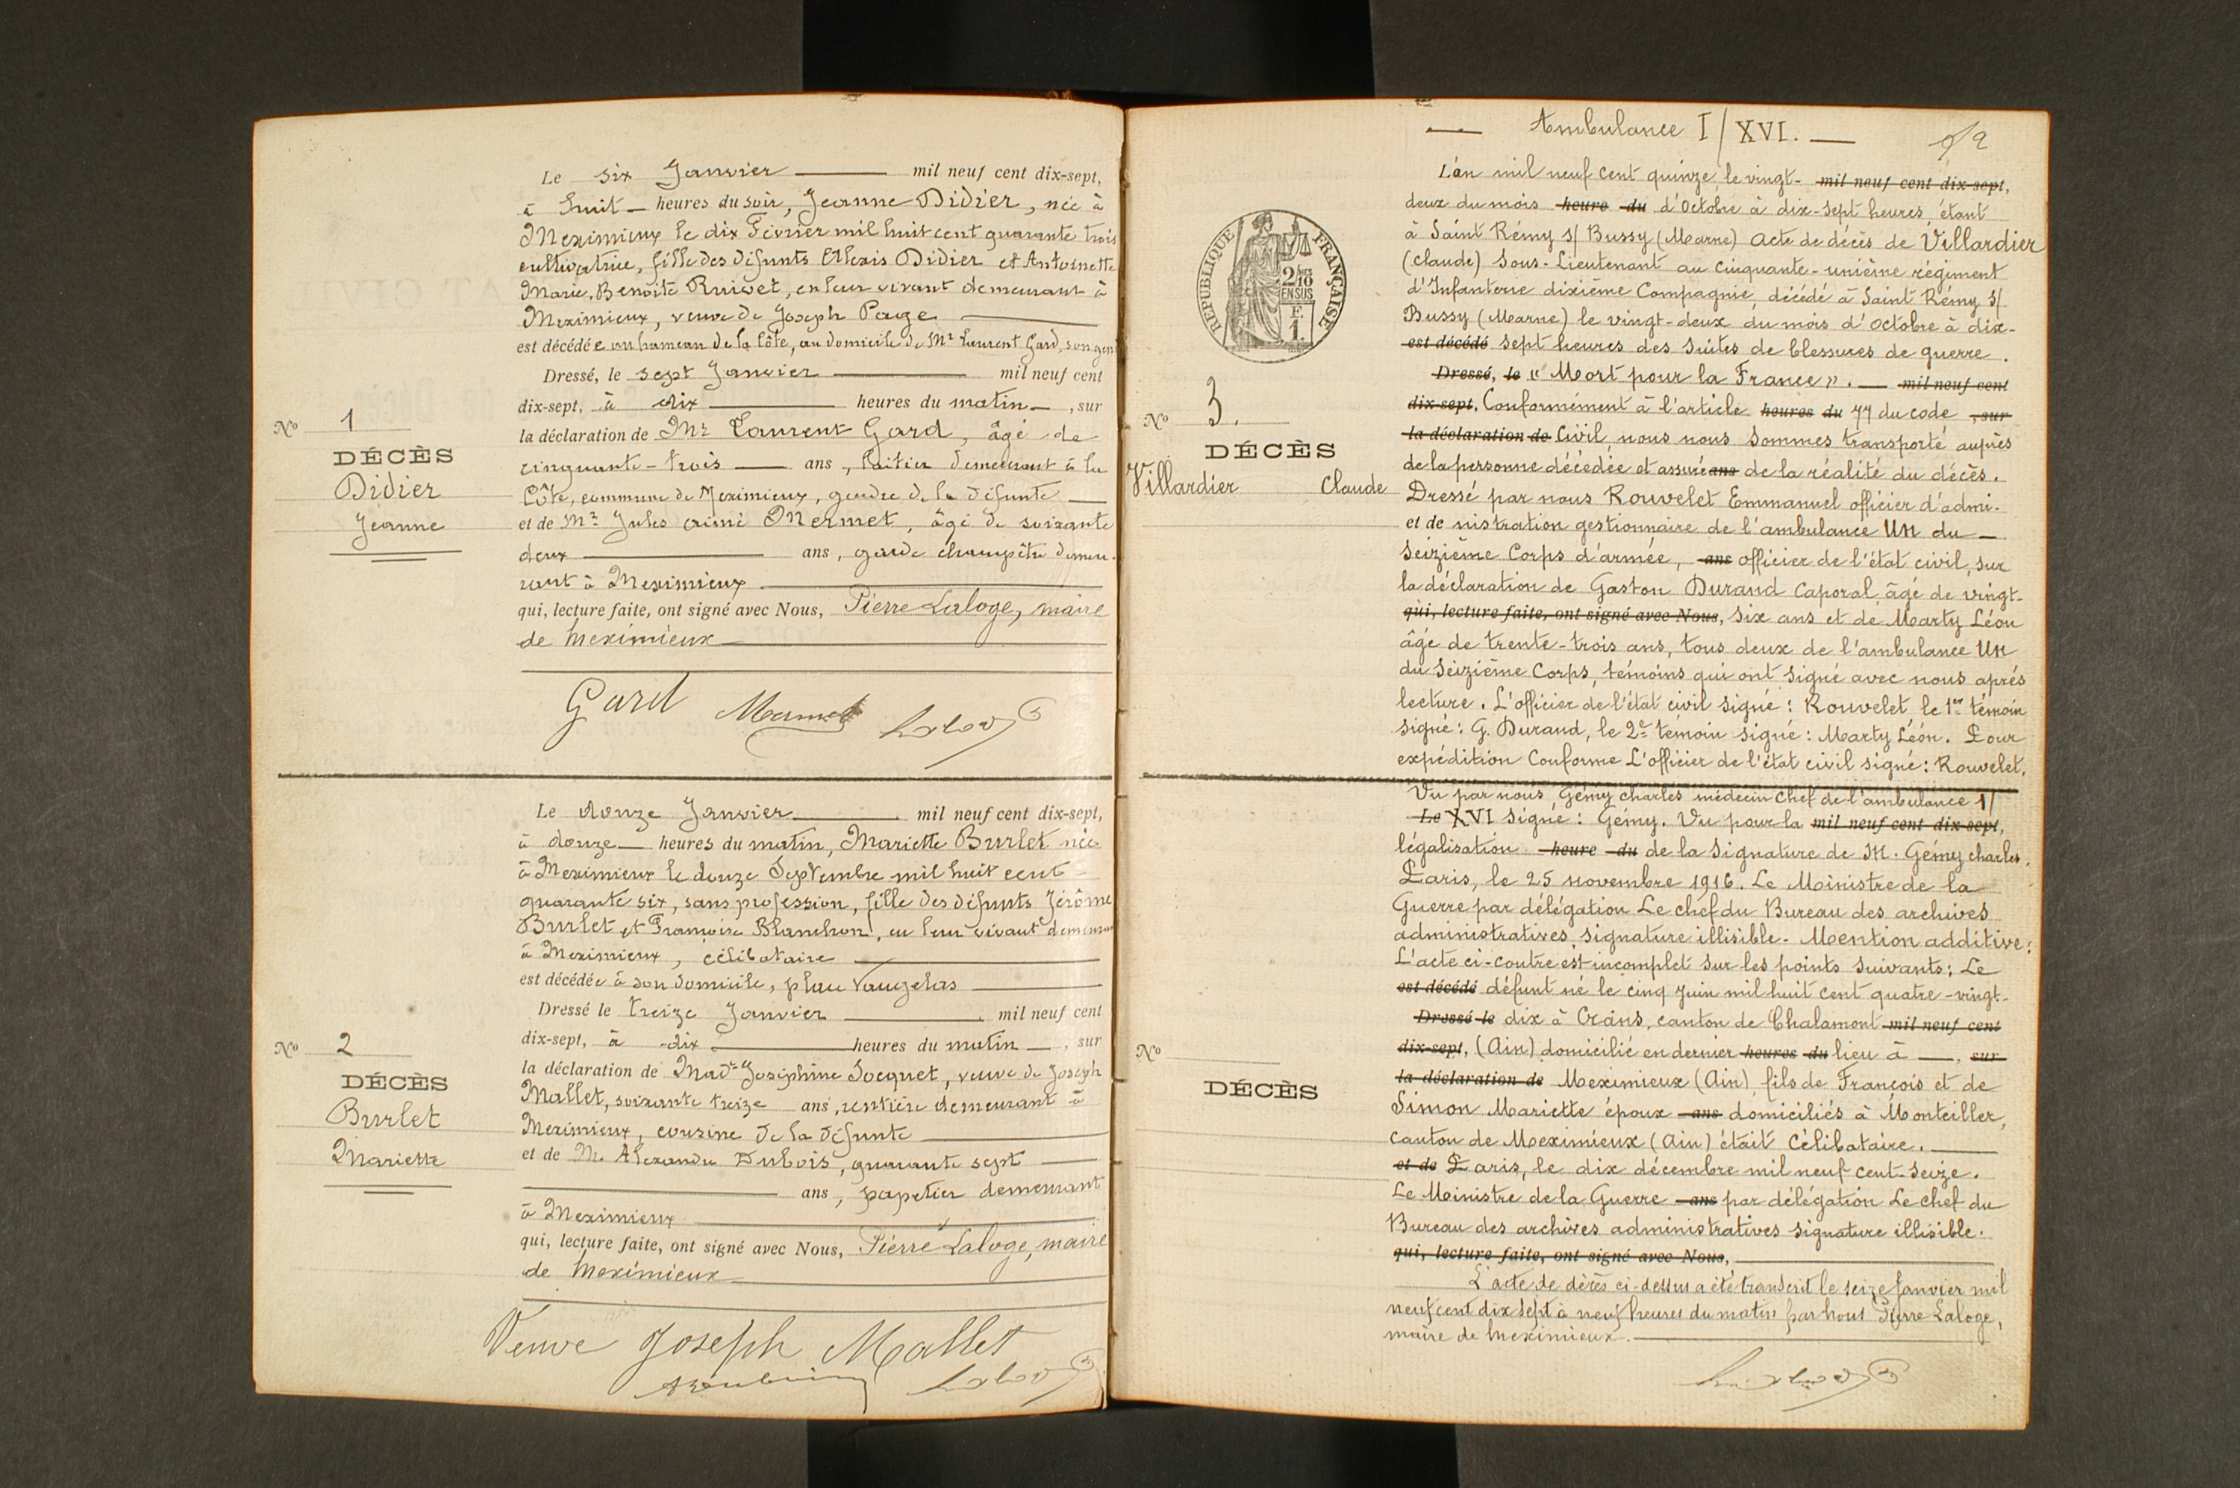 Le six Janvier mil neuf cent dix-sept,
à huit heures du soir, Jeanne Didier, née à
Meximieux le dix Février mil huit cent quarante trois
cultivatrice, fille des défunts Alexis Didier et Antoinette
Marie, Benoîte Ruivet, en leur vivant demeurant à
Meximieux, veuve de Joseph Page
est décédée au hameau de la Côte, au domicile de Mr Laurent Gard, son gen
Dressé, le sept Janvier mil neuf cent
dix-sept, à dix heures du matin, sur
la déclaration de Mr Laurent Gard, âgé de
cinquante-trois ans, laitier demeurant à la
Côte, commune de Meximieux, gendre de la défunte
et de Mr Jules Mermet, âgé de soixante
deux ans, garde champêtre demeu-
rant à Meximieux
qui, lecture faite, ont signé avec Nous, Pierre Laloge, maire
de Meximieux
Gard Mermet Laloge
No 1
DÉCÈS
Didier
Jeanne
Le douze Janvier mil neuf cent dix-sept,
à douze heures du matin, Mariette Burlet née
à Meximieux le douze Septembre mil huit cent
quarante six, sans profession, fille des défunts Jérôme
Burlet et Françoise Blanchon, en leur vivant demeurant
à Meximieux, célibataire
est décédée à son domicile, place Vaugelas
Dressé le treize Janvier mil neuf cent
dix-sept, à dix heures du matin, sur
la déclaration de Made Joséphine Socquet, veuve de Joseph
Mallet, soixante treize ans, rentière demeurant à
Meximieux, cousine de la défunte
et de M. Alexandre Dubois, quarante sept
ans, papetier demeurant
à Meximieux
qui, lecture faite, ont signé avec Nous, Pierre Laloge, maire
de Meximieux
Veuve Joseph Mallet
Laloge
No 2
DÉCÈS
Burlet
Mariette
Ambulance I/XVI.
2
RÉPUBLIQUE FRANÇAISE
2/10
EN SUS
L'an mil neuf cent quinze, le vingt- mil neuf cent dix-sept,
deux du mois heure du d'Octobre à dix-sept heures, étant
à Saint Rémy s/ Bussy (Marne) Acte de décès de Villardier
(Claude) Sous-Lieutenant au cinquante-unième régiment
d'Infanterie dixième Compagnie, décédé à Saint Rémy s/
Bussy (Marne) le vingt-deux du mois d'Octobre à dix-
est décédé sept heures des suites de blessures de guerre.
Dressé, le "Mort pour la France". mil neuf cent
dix-sept. Conformément à l'article heures du 77 du code , sur
la déclaration de Civil, nous nous sommes transporté auprès
de la personne décédée et assuré ans de la réalité du décès.
Dressé par nous Rouvelet Emmanuel officier d'admi-
et de nistration gestionnaire de l'ambulance Un du
Seizième Corps d'armée, ans officier de l'état civil, sur
la déclaration de Gaston Durand Caporal âgé de vingt-
qui, lecture faite, ont signé avec Nous, six ans et de Marty Léon
âgé de trente-trois ans, tous deux de l'ambulance Un
du Seizième Corps, témoins qui ont signé avec nous après
lecture. L'officier de l'état civil signé: Rouvelet le 1er témoin
signé: G. Durand, le 2e témoin signé: Marty Léon. Pour
expédition Conforme L'officier de l'état civil signé: Rouvelet.
No 3.
DÉCÈS
Villardier Claude
Vu par nous, Gémy charles médecin chef de l'ambulance 1/
Le XVI signé: Gémy. Vu pour la mil neuf cent dix-sept,
légalisation heure du de la signature de M. Gémy charles.
Paris, le 25 novembre 1916. Le Ministre de la
Guerre par délégation Le chef du Bureau des archives
administratives, signature illisible. Mention additive:
L'acte ci-contre est incomplet sur les points suivants: Le
est décédé défunt né le cinq Juin mil huit cent quatre-vingt-
Dressé le dix à Crans, canton de Chalamont mil neuf cent
dix-sept, (Ain) domicilié en dernier heures du lieu à , sur
la déclaration de Meximieux (Ain) fils de François et de
Simon Mariette époux ans domiciliés à Monteiller,
canton de Meximieux (Ain) était Célibataire.
et de Paris, le dix décembre mil neuf cent-seize.
Le Ministre de la Guerre ans par délégation Le chef du
Bureau des archives administratives signature illisible.
qui, lecture faite, ont signé avec Nous,
L'acte de décès ci-dessus a été transcrit le seize Janvier mil
neuf cent dix sept à neuf heures du matin par nous Pierre Laloge,
maire de Meximieux.
Laloge
No
DÉCÈS